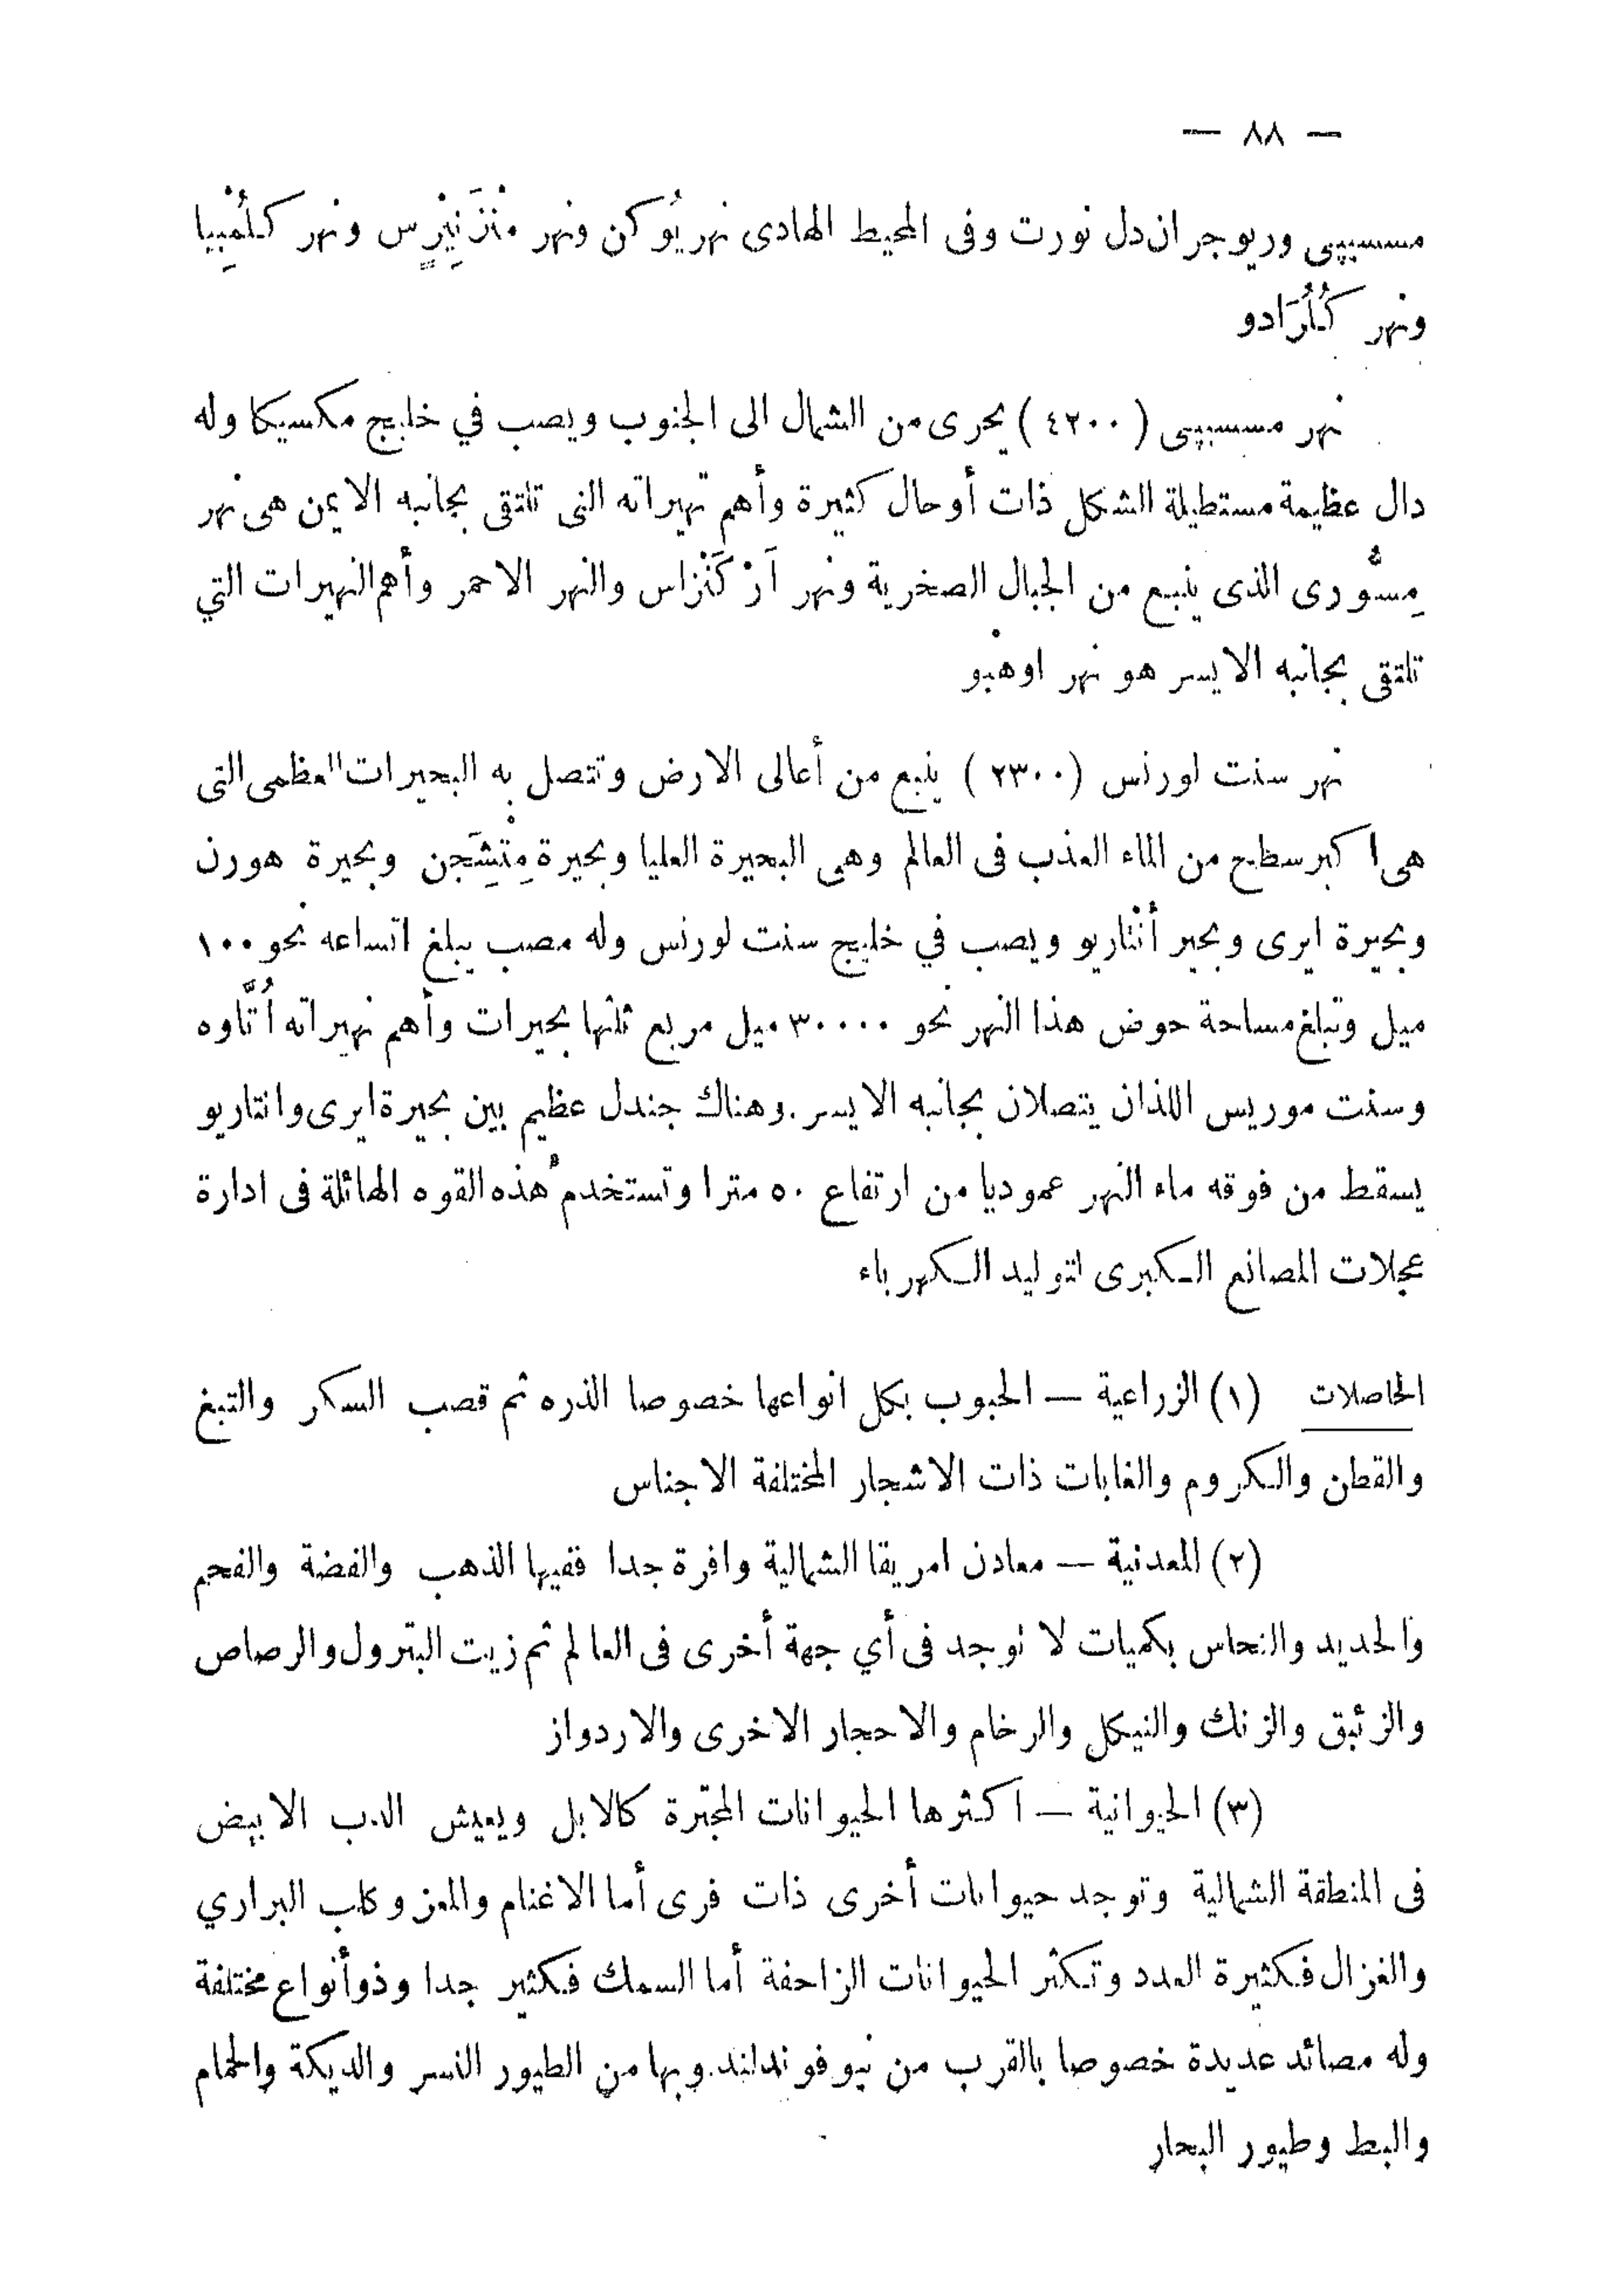 — ٨٨ —
مسسيپى وريوجران دل نورت وفى المحيط الهادى نهر يُوكن ونهر ونهر كلُمْبِيا
ونهر كُلُرَادو
نهر مسسيپى ( ٤٢٠٠ ) يحرى من الشمال الى الجنوب ويصب في خليج مكسيكا وله
دال عظيمة مستطيلة الشكل ذات أوحال كثيرة وأهم نهيراته التى تلتقى بجانبه الايمن هى نهر
مِسُّورى الذى ينبع من الجبال الصخرية ونهر اَرْكَنْزاس والنهر الاحمر وأهم النهيرات التي
تلتقى بجانبه الايسر هو نهر اوهيو
نهر سنت لورنس (٢٣٠٠ ) ينبع من أعالى الارض وتتصل به البحيرات العظمى التى
هى اكبر سطح من الماء العذب فى العالم وهى البحيرة العليا وبحيرة مِتْشَجِن وبحيرة هورن
وبحيرة ايرى وبحير أنْتاريو ويصب في خليج سنت لورنس وله مصب يبلغ اتساعه نحو ١٠٠
ميل وتبلغ مساحة حوض هذا النهر نحو ٣٠٠٠٠ ميل مربع ثلثها بحيرات وأهم نهيراته اُتَّاوه
وسنت موريس اللذان يتصلان بجانبه الايسر. وهناك جندل عظيم بين بحيرة ايرى وانتاريو
يسقط من فوقه ماء النهر عموديا من ارتفاع ٥٠ مترا وتستخدم هذه القوه الهائلة فى ادارة
عجلات المصانع الكبرى لتوليد الكهرباء
الحاصلات (١) الزراعية — الحبوب بكل انواعها خصوصا الذره ثم قصب السكر والتبغ
والقطن والكروم والغابات ذات الاشجار المختلفة الاجناس
(٢) المعدنية — معادن امريقا الشمالية وافرة جدا ففيها الذهب والفضة والفحم
والحديد والنحاس بكميات لا توجد فى أي جهة أخرى فى العالم ثم زيت البترول والرصاص
والزئبق والزنك والنيكل والرخام والاحجار الاخرى والاردواز
(٣) الحيوانية — اكثرها الحيوانات المجترة كالابل ويعيش الدب الابيض
فى المنطقة الشمالية وتوجد حيوانات أخرى ذات فرى أما الاغنام والمعز وكلب البراري
والغزال فكثيرة العدد وتكثر الحيوانات الزاحفة أما السمك فكثير جدا وذو أنواع مختلفة
وله مصائد عديدة خصوصا بالقرب من نيوفوندلند. وبها من الطيور النسر والديكة والحمام
والبط وطيور البحار